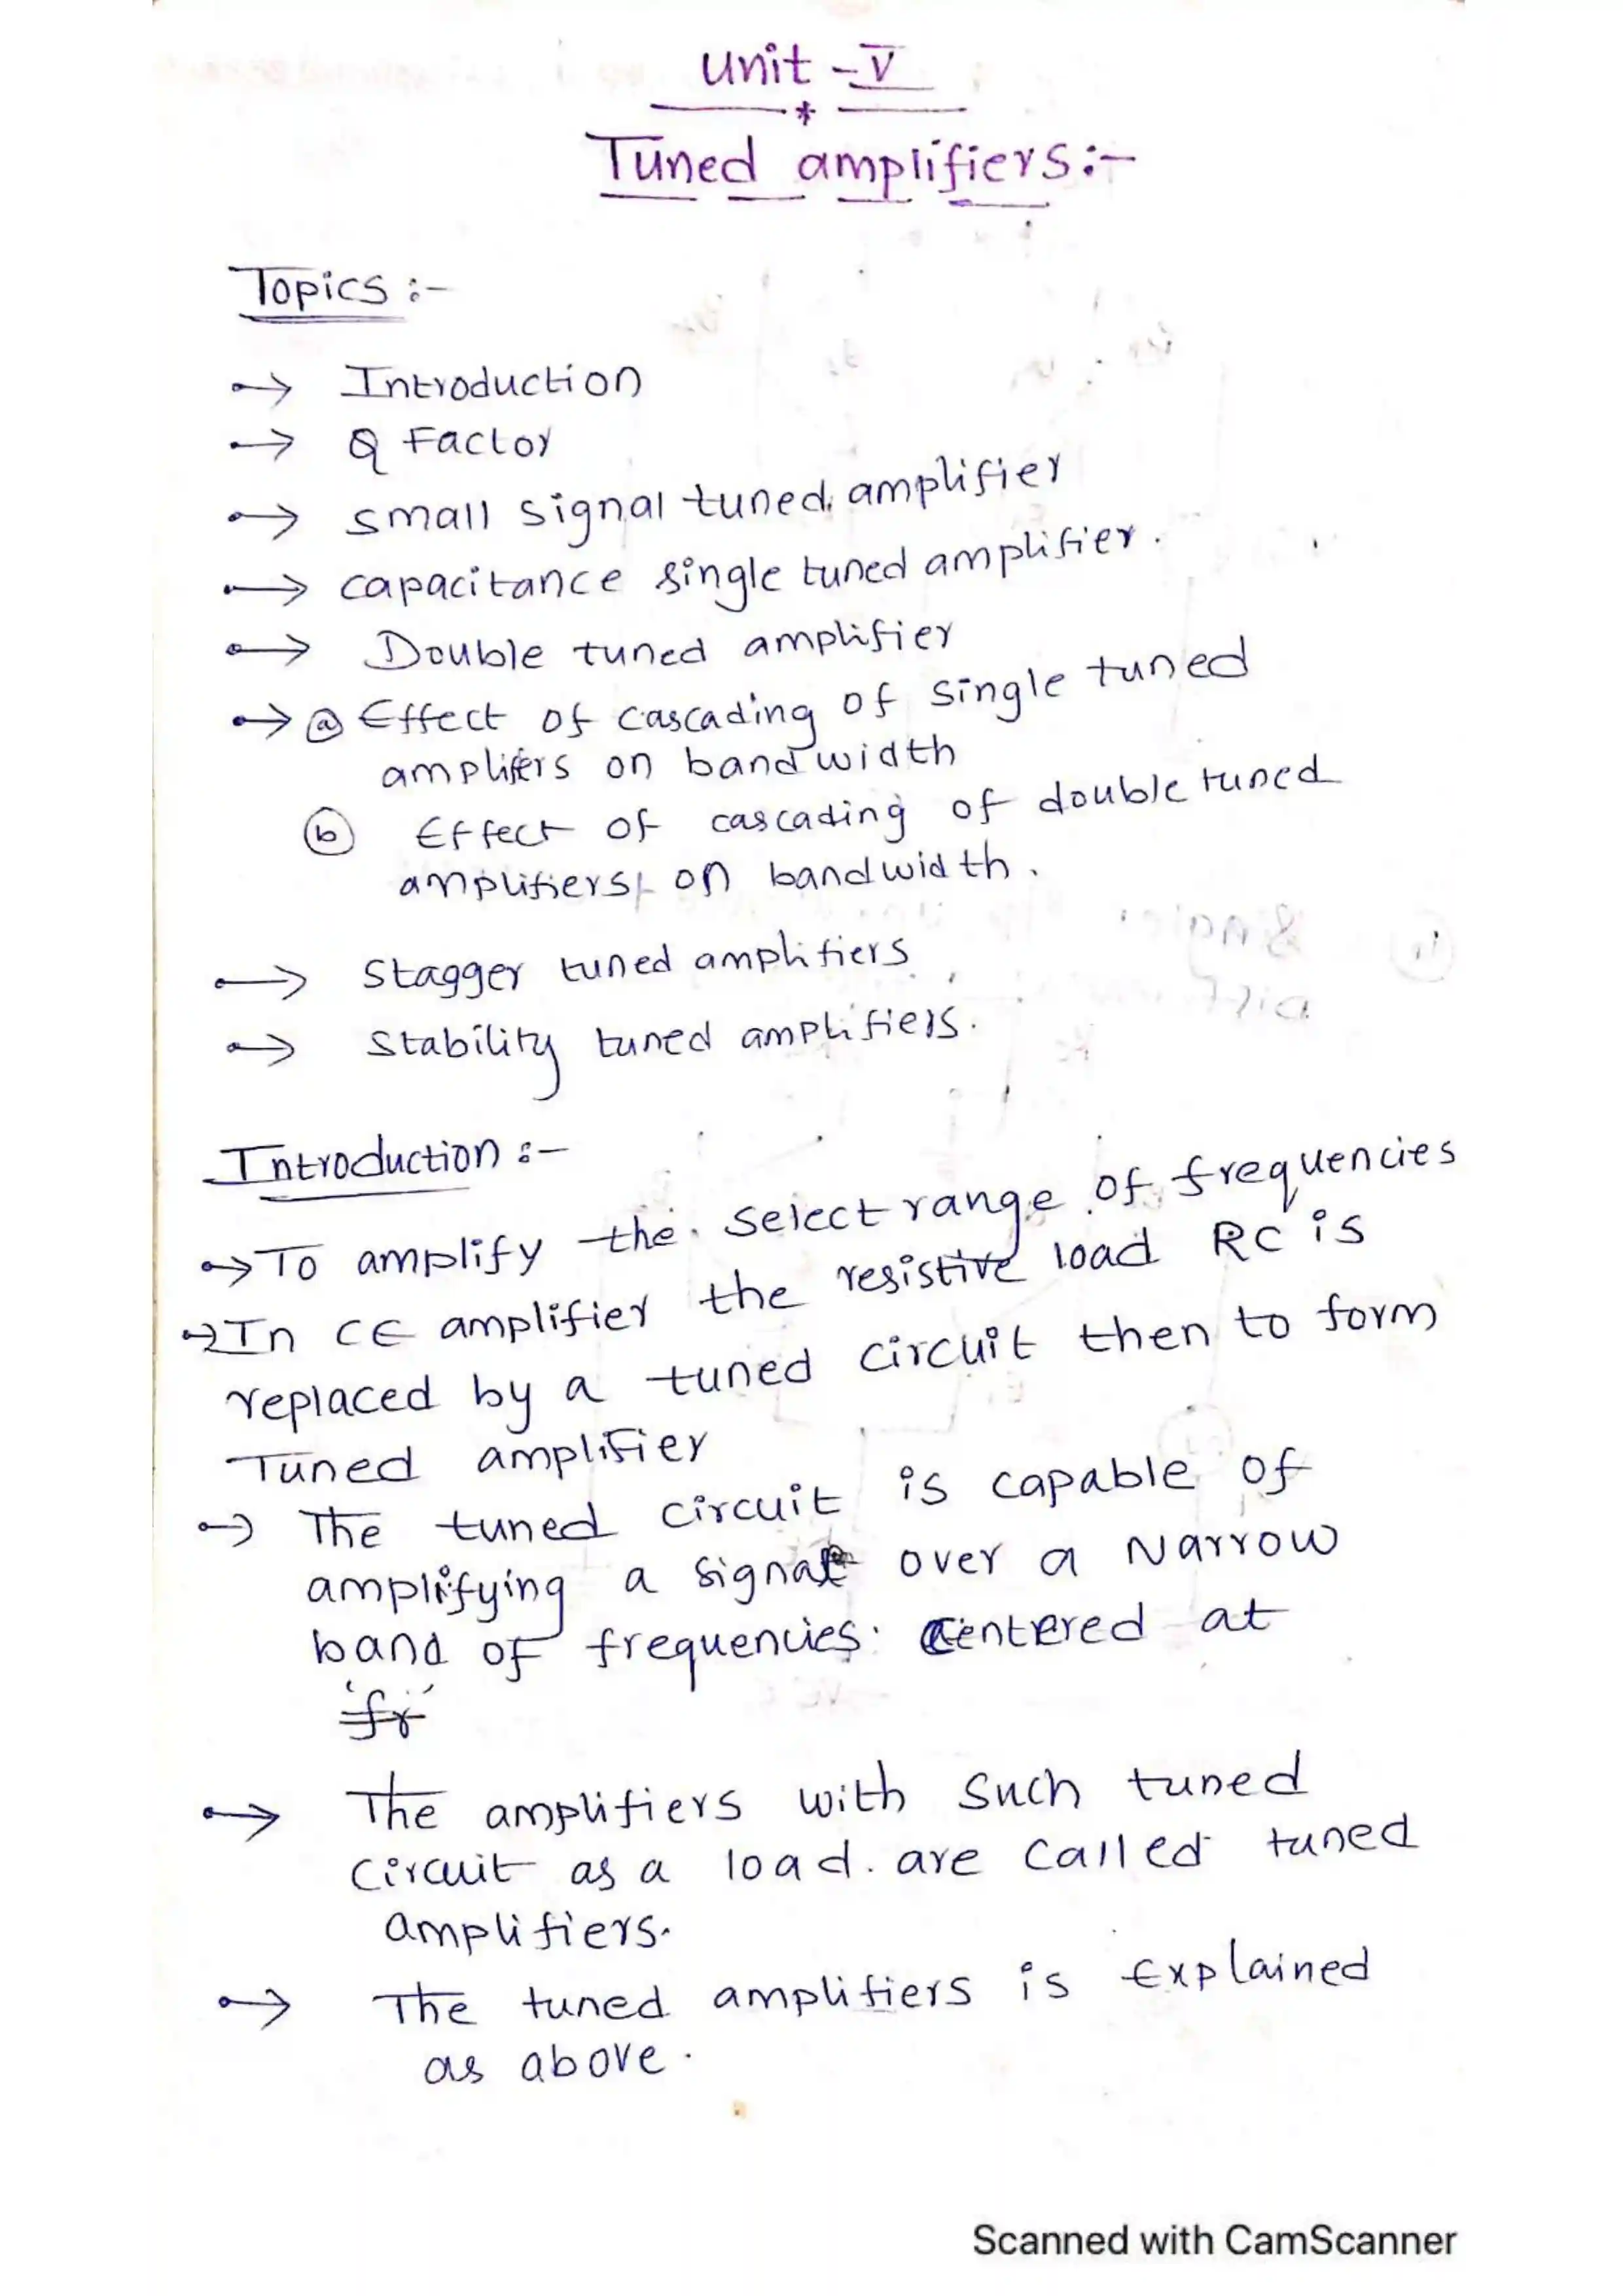 unit - V
Tuned amplifiers:-
Topics :-
→ Introduction
→ Q Factor
→ small signal tuned amplifier
→ capacitance single tuned amplifier.
→ Double tuned amplifier
→ ⓐ Effect of cascading of single tuned
amplifers on bandwidth
ⓑ Effect of cascading of double tuned
amplifiers on bandwidth.
→ Stagger tuned amplifiers
→ Stability tuned amplifiers.
Introduction :-
→ To amplify the select range of frequencies
→ In CE amplifier the resistive load RC is
replaced by a tuned circuit then to form
Tuned amplifier
→ The tuned circuit is capable of
amplifying a signal over a Narrow
band of frequencies centered at
'fr'
→ The amplifiers with such tuned
circuit as a load. are called tuned
amplifiers.
→ The tuned amplifiers is Explained
as above.
Scanned with CamScanner